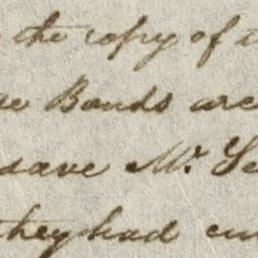 the copy of
Bonds are
save Mr.
they had